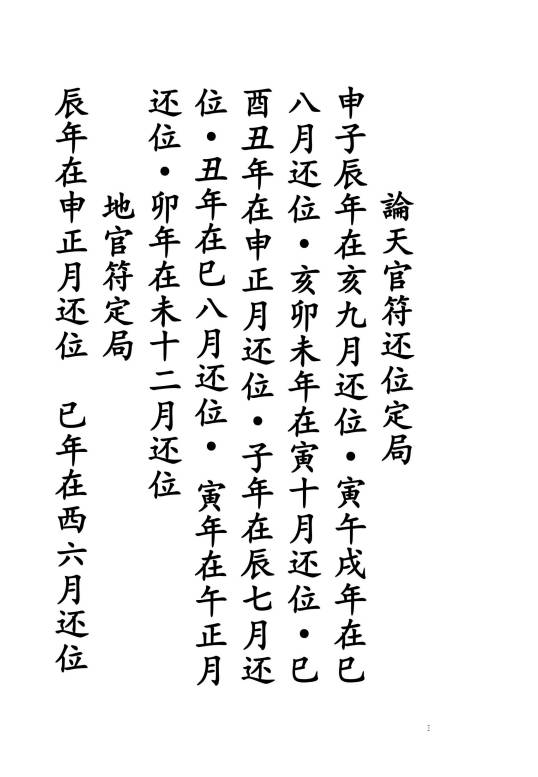 論天官符还位定局
申子辰年在亥九月还位•寅午戌年在巳
八月还位•亥卯未年在寅十月还位•巳
酉丑年在申正月还位•子年在辰七月还
位•丑年在巳八月还位• 寅年在午正月
还位•卯年在未十二月还位
地官符定局
辰年在申正月还位 巳年在西六月还位